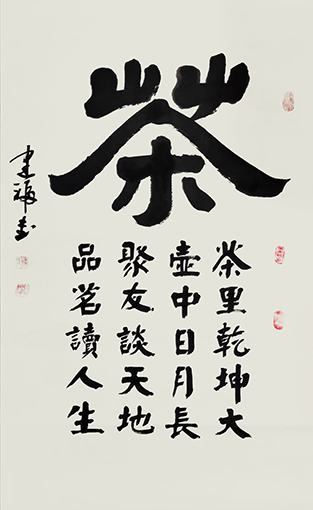 茶
茶里乾坤大
壶中日月長
聚友談天地
品茗讀人生
建福書